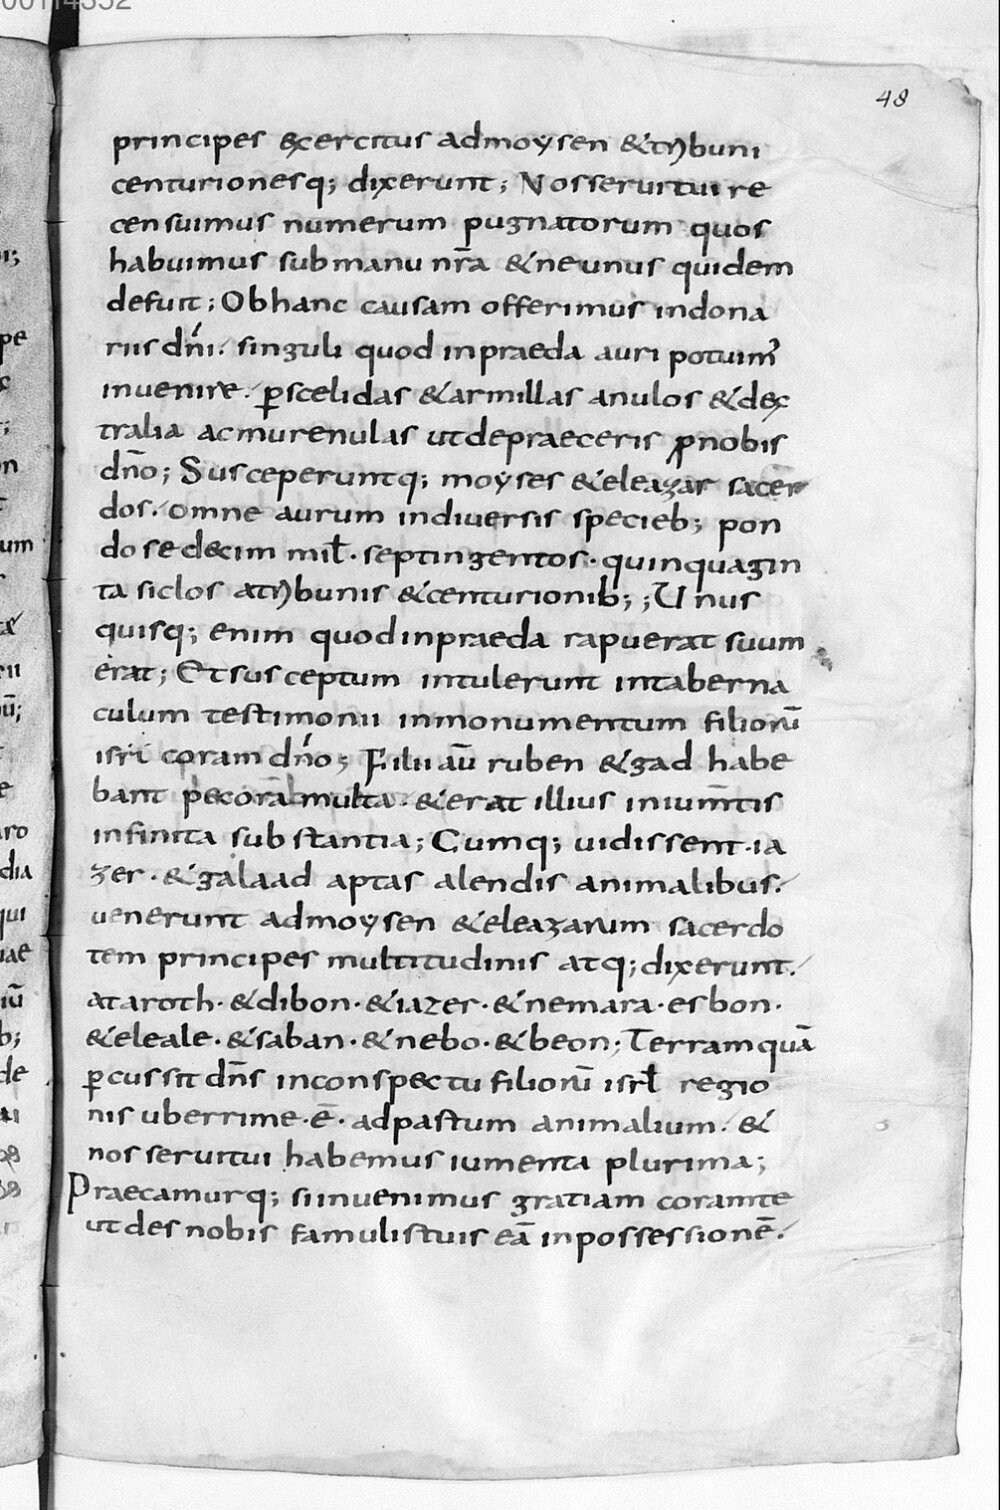 00114352
48
principes excercitus admoysen & trybuni
centurionesq; dixerunt; Nosseruitui re
censuimus numerum pugnatorum quos
habuimus submanu nr̄a & neunus quidem
defuit; Obhanc causam offerimus indona
riis dn̄i. singuli quod inpraeda auri potuim᾽
inuenire. ꝑscelidas & armillas anulos & dex
tralia acmurenulas utdepraeceris ꝓnobis
dn̄o; Susceperuntq; moyses & eleazar sacer
dos. omne aurum indiuersis specieb; pon
do sedecim mil̄. septingentos. quinquagin
ta siclos atrybunis & centurionib;; Unus
quisq; enim quodinpraeda rapuerat suum
erat; Et susceptum intulerunt intaberna
culum testimonii inmonumentum filiorū
isrl̄ coram dn̄o; Filii aū ruben & gad habe
bant pecora multa. & erat illius iniumtis
infinita substantia; Cumq; uidissent. ia
zer. & galaad aptas alendis animalibus.
uenerunt admoysen & eleazarum sacerdo
tem principes multitudinis atq; dixerunt.
ataroth. & dibon. & iazer. & nemara. esbon.
& eleale. & saban. & nebo. & beon; Terramquā
ꝑcussit dn̄s inconspectu filiorū isrl̄ regio
nis uberrime. ē. adpastum animalium. &
nos seruitui habemus iumenta plurima;
Praecamurq; siinuenimus gratiam coramte
utdes nobis famulistuis eā inpossessionē.